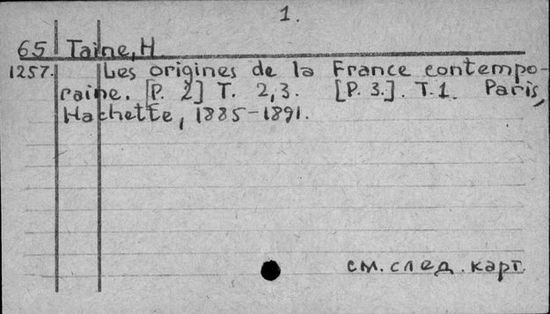 1.
65 Taine, H
1257. Les origines de la France contempo-
raine. [P. 2] T. 2, 3. [P. 3.]. T. 1. Paris,
Hachette, 1885-1891.
см. след. карт.